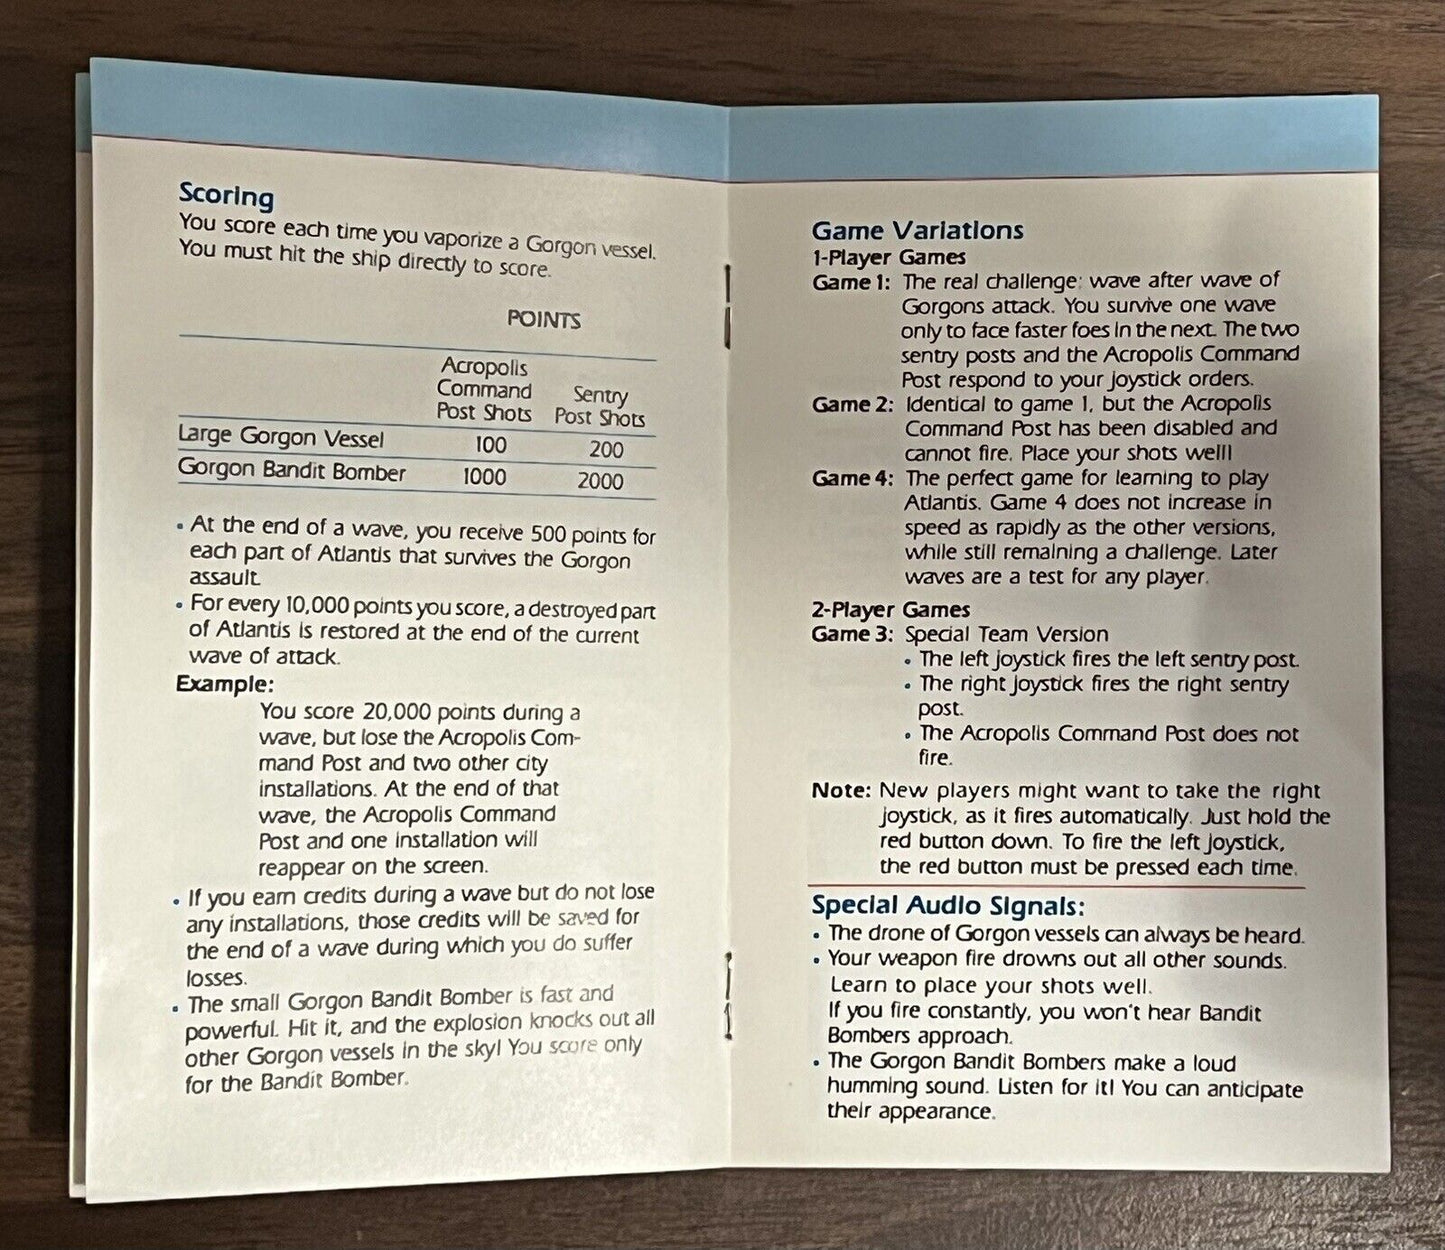 Scoring
You score each time you vaporize a Gorgon vessel.
You must hit the ship directly to score.
POINTS
Acropolis
Command
Post Shots
Sentry
Post Shots
Large Gorgon Vessel 100 200
Gorgon Bandit Bomber 1000 2000
• At the end of a wave, you receive 500 points for
each part of Atlantis that survives the Gorgon
assault.
• For every 10,000 points you score, a destroyed part
of Atlantis is restored at the end of the current
wave of attack.
Example:
You score 20,000 points during a
wave, but lose the Acropolis Com-
mand Post and two other city
installations. At the end of that
wave, the Acropolis Command
Post and one installation will
reappear on the screen.
• If you earn credits during a wave but do not lose
any installations, those credits will be saved for
the end of a wave during which you do suffer
losses.
• The small Gorgon Bandit Bomber is fast and
powerful. Hit it, and the explosion knocks out all
other Gorgon vessels in the sky! You score only
for the Bandit Bomber.
Game Variations
1-Player Games
Game 1: The real challenge: wave after wave of
Gorgons attack. You survive one wave
only to face faster foes in the next. The two
sentry posts and the Acropolis Command
Post respond to your joystick orders.
Game 2: Identical to game 1, but the Acropolis
Command Post has been disabled and
cannot fire. Place your shots well!
Game 4: The perfect game for learning to play
Atlantis. Game 4 does not increase in
speed as rapidly as the other versions,
while still remaining a challenge. Later
waves are a test for any player.
2-Player Games
Game 3: Special Team Version
• The left joystick fires the left sentry post.
• The right joystick fires the right sentry
post.
• The Acropolis Command Post does not
fire.
Note: New players might want to take the right
joystick, as it fires automatically. Just hold the
red button down. To fire the left joystick,
the red button must be pressed each time.
Special Audio Signals:
• The drone of Gorgon vessels can always be heard.
• Your weapon fire drowns out all other sounds.
Learn to place your shots well.
If you fire constantly, you won't hear Bandit
Bombers approach.
• The Gorgon Bandit Bombers make a loud
humming sound. Listen for it! You can anticipate
their appearance.